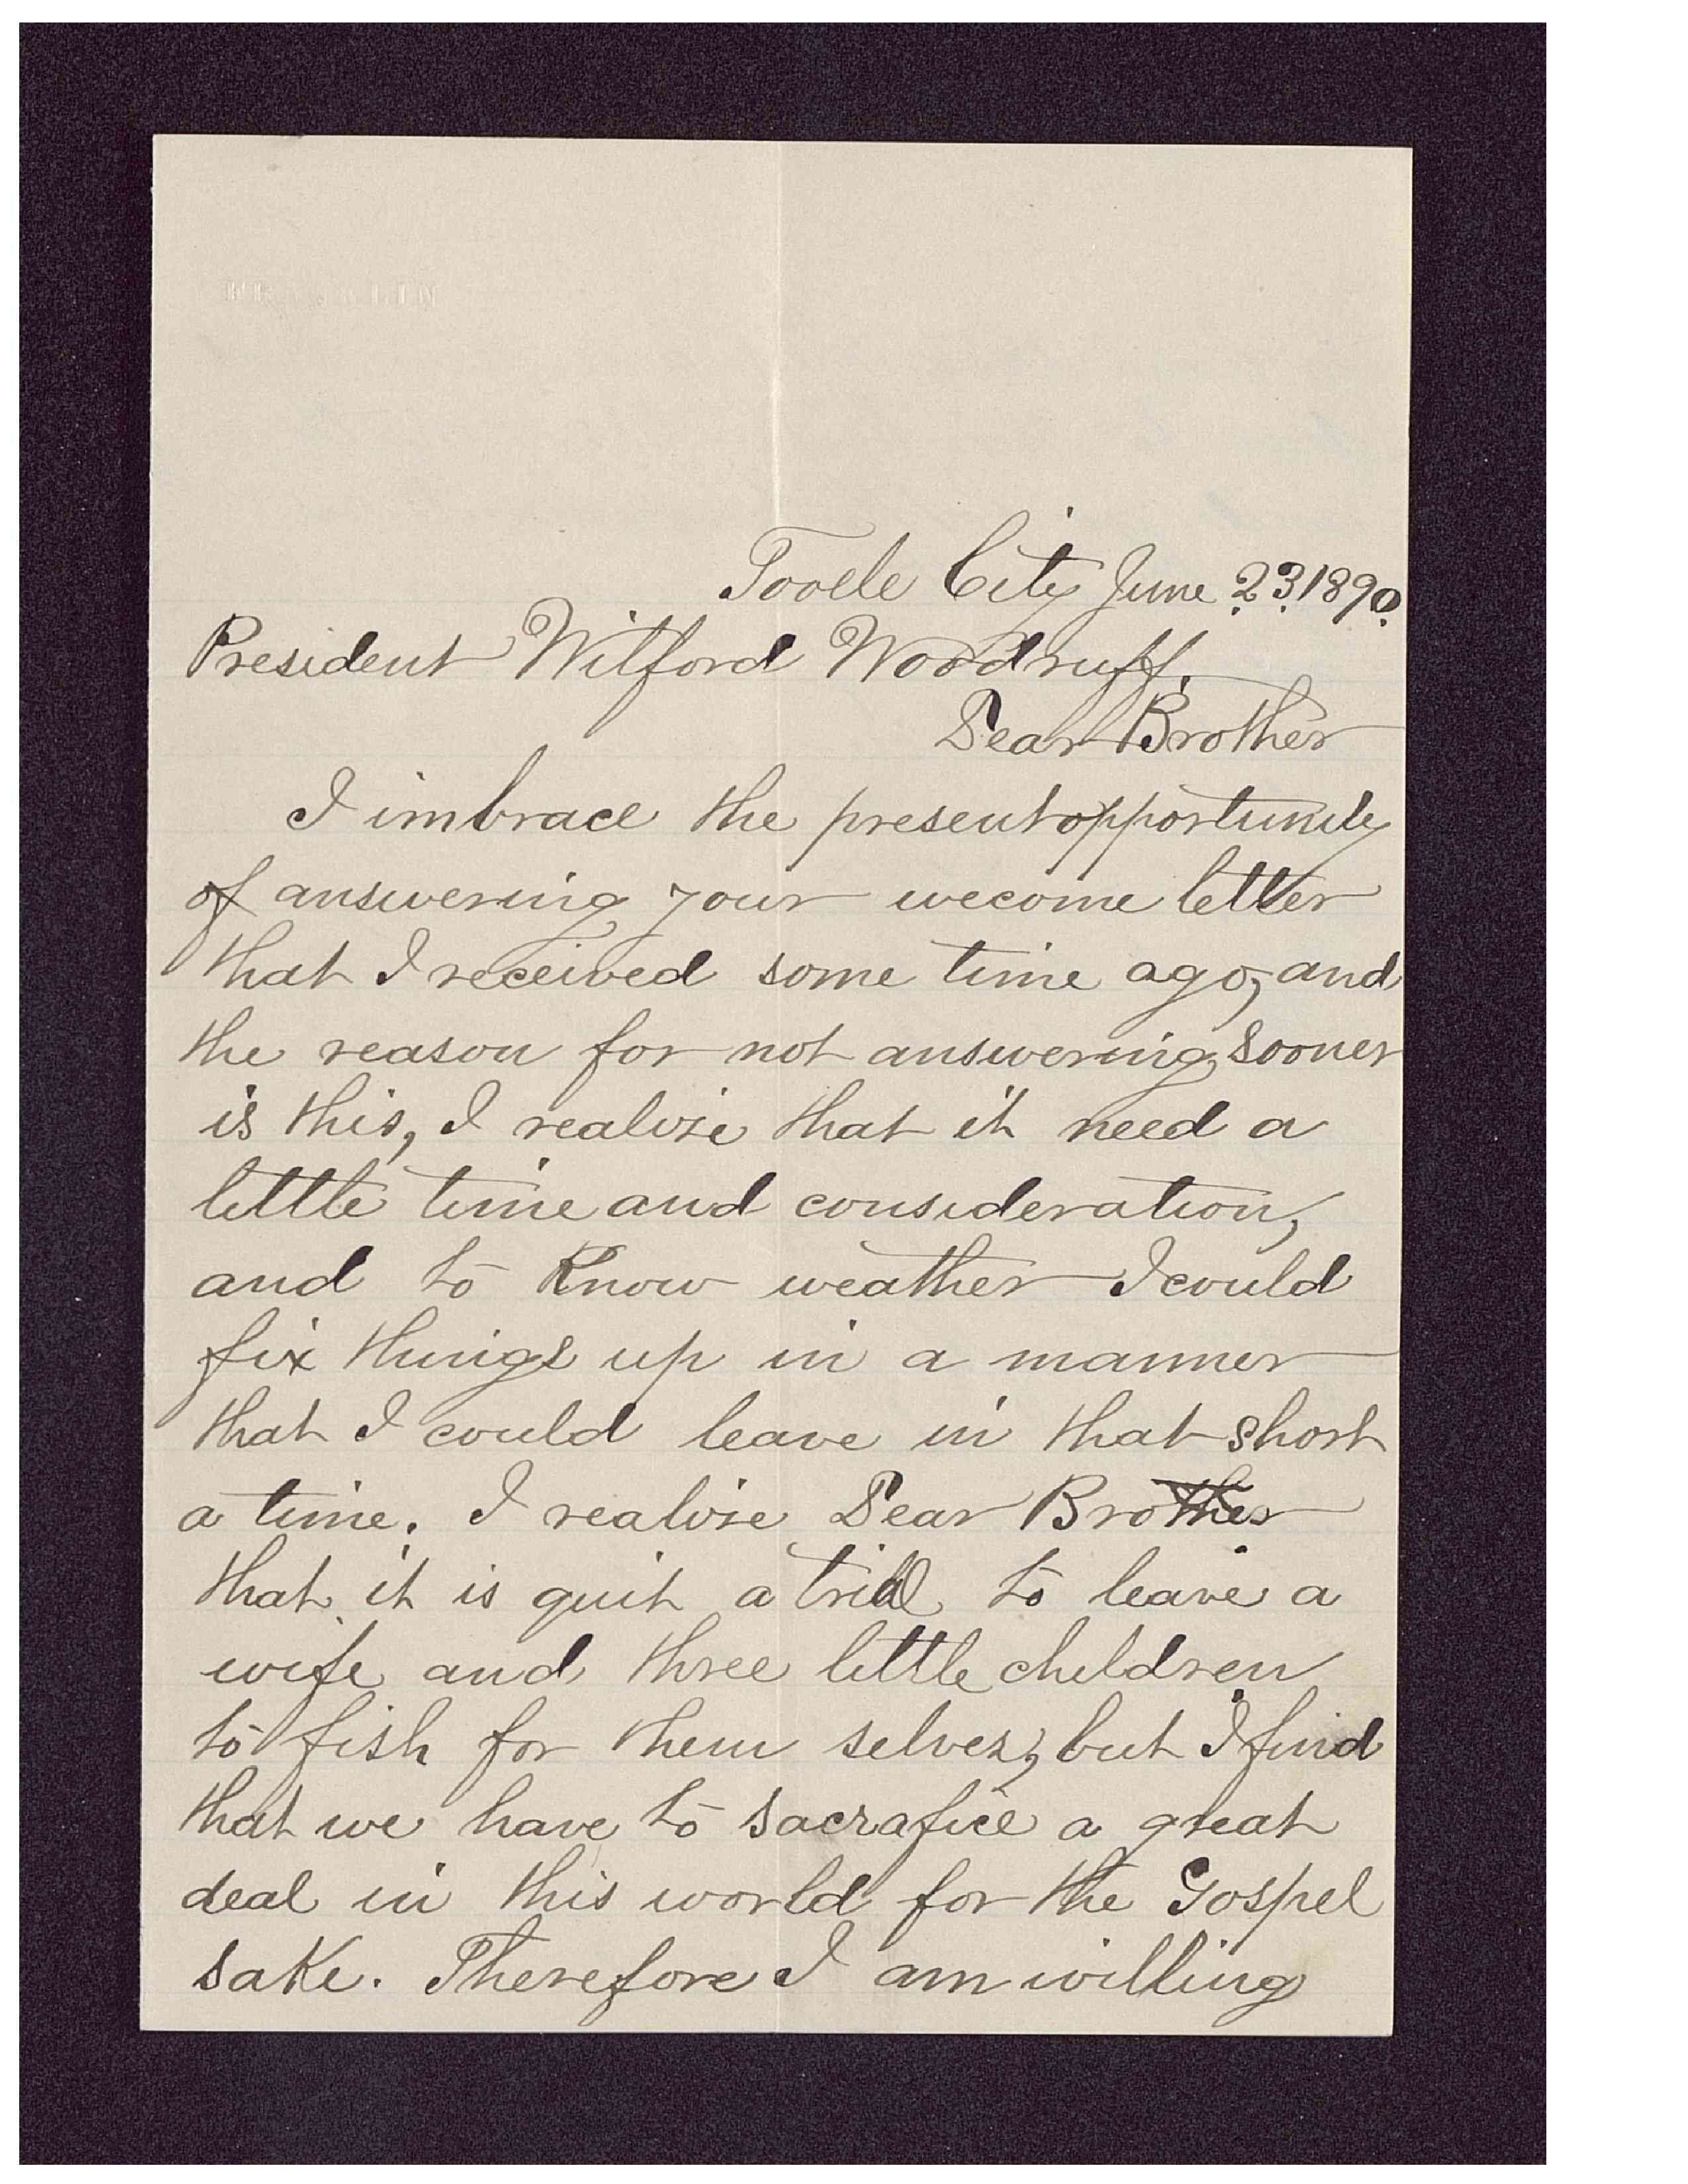 FRANKLIN
Tooele City June 23 1890.
President Wilford Woodruff.
Dear Brother
I imbrace the present opportunity
of answering your wecome letter
that I received some time ago, and
the reason for not answering sooner
is this, I realize that it need a
little time and consideration,
and to know weather I could
fix things up in a manner
that I could leave in that short
a time. I realize Dear Brother
that it is quit a trial to leave a
wife and three little children
to fish for them selves, but I find
that we have to sacrafice a great
deal in this world for the Gospel
sake. Therefore I am willing